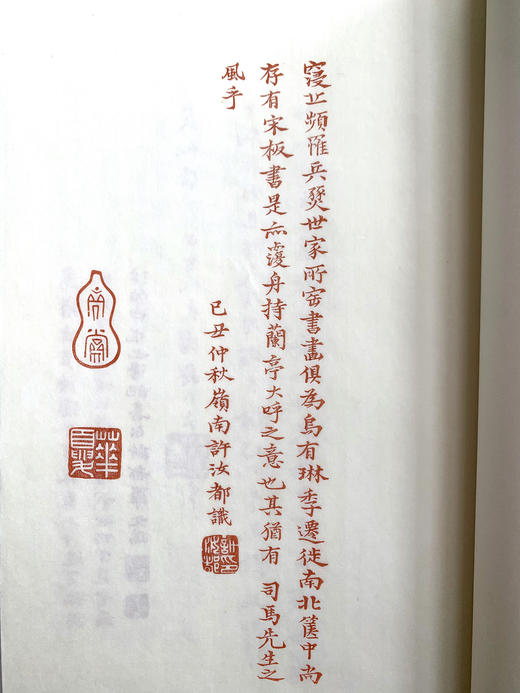 寖止頻罹兵燹世家所密書畫俱為烏有琳季遷徙南北篋中尚
存有宋板書是亦覆舟持蘭亭大呼之意也其猶有 司馬先生之
風乎
己丑仲秋嶺南許汝都識